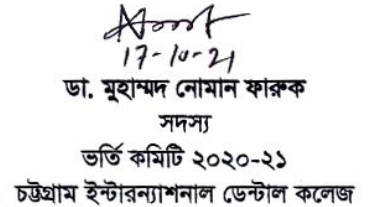 17-10-21
ডা. মুহাম্মদ নোমান ফারুক
সদস্য
ভর্তি কমিটি ২০২০-২১
চট্টগ্রাম ইন্টারন্যাশনাল ডেন্টাল কলেজ